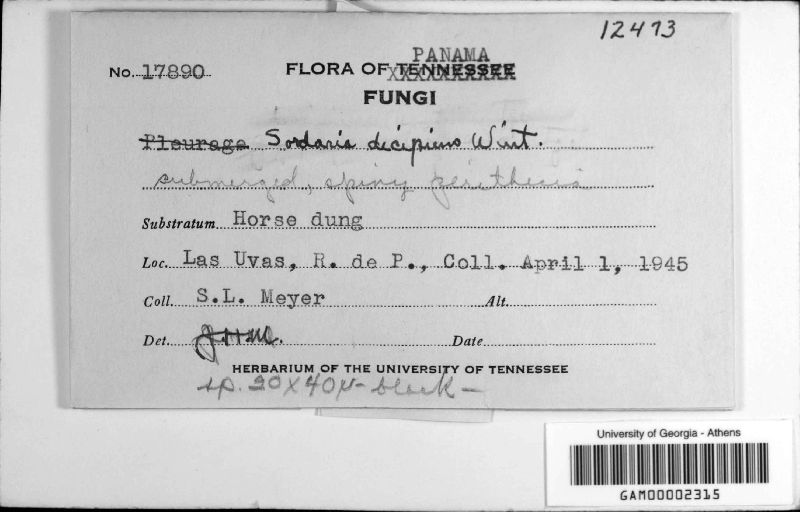 12473
PANAMA
No. 17890 FLORA OF TENNESSEE
FUNGI
Pleurage Sordaria decipiens Wint.
submerged, spiny perithecia
Substratum Horse dung
Loc. Las Uvas, R. de P., Coll. April 1, 1945
Coll. S.L. Meyer Alt.
Det. Date
HERBARIUM OF THE UNIVERSITY OF TENNESSEE
sp. 20 X 40 µ - black -
University of Georgia - Athens
GAM00002315